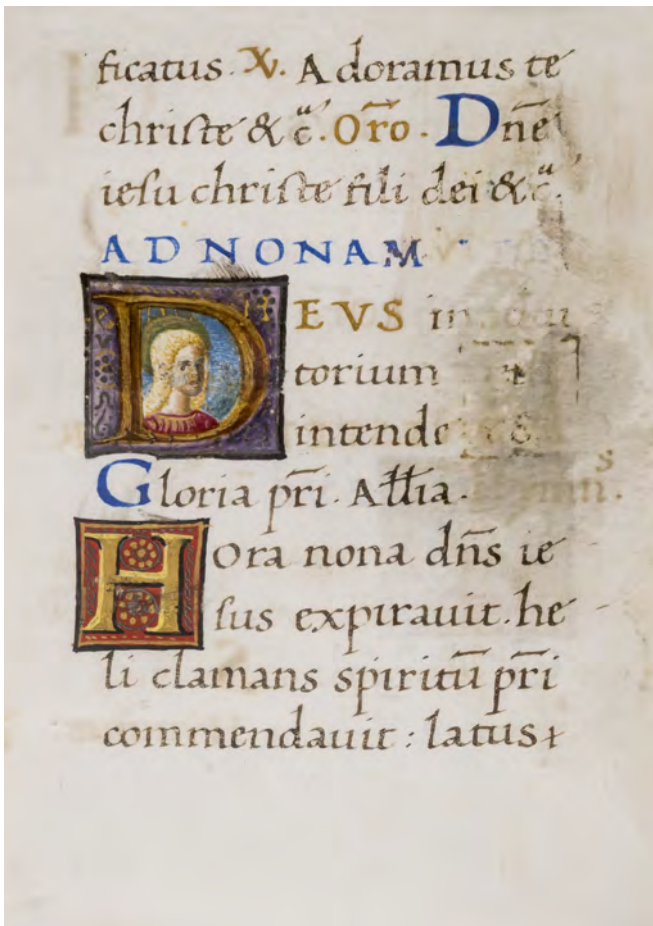 ficatus. X. Adoramus te
christe & c̄. Or̄o. Dn̄e
iesu christe fili dei & c̄.
AD NONAM
DEVS in
torium
intende
Gloria pr̄i. All̄ia.
HOra nona dn̄s ie
sus expirauit. he
li clamans spiritū pr̄i
commendauit : latus